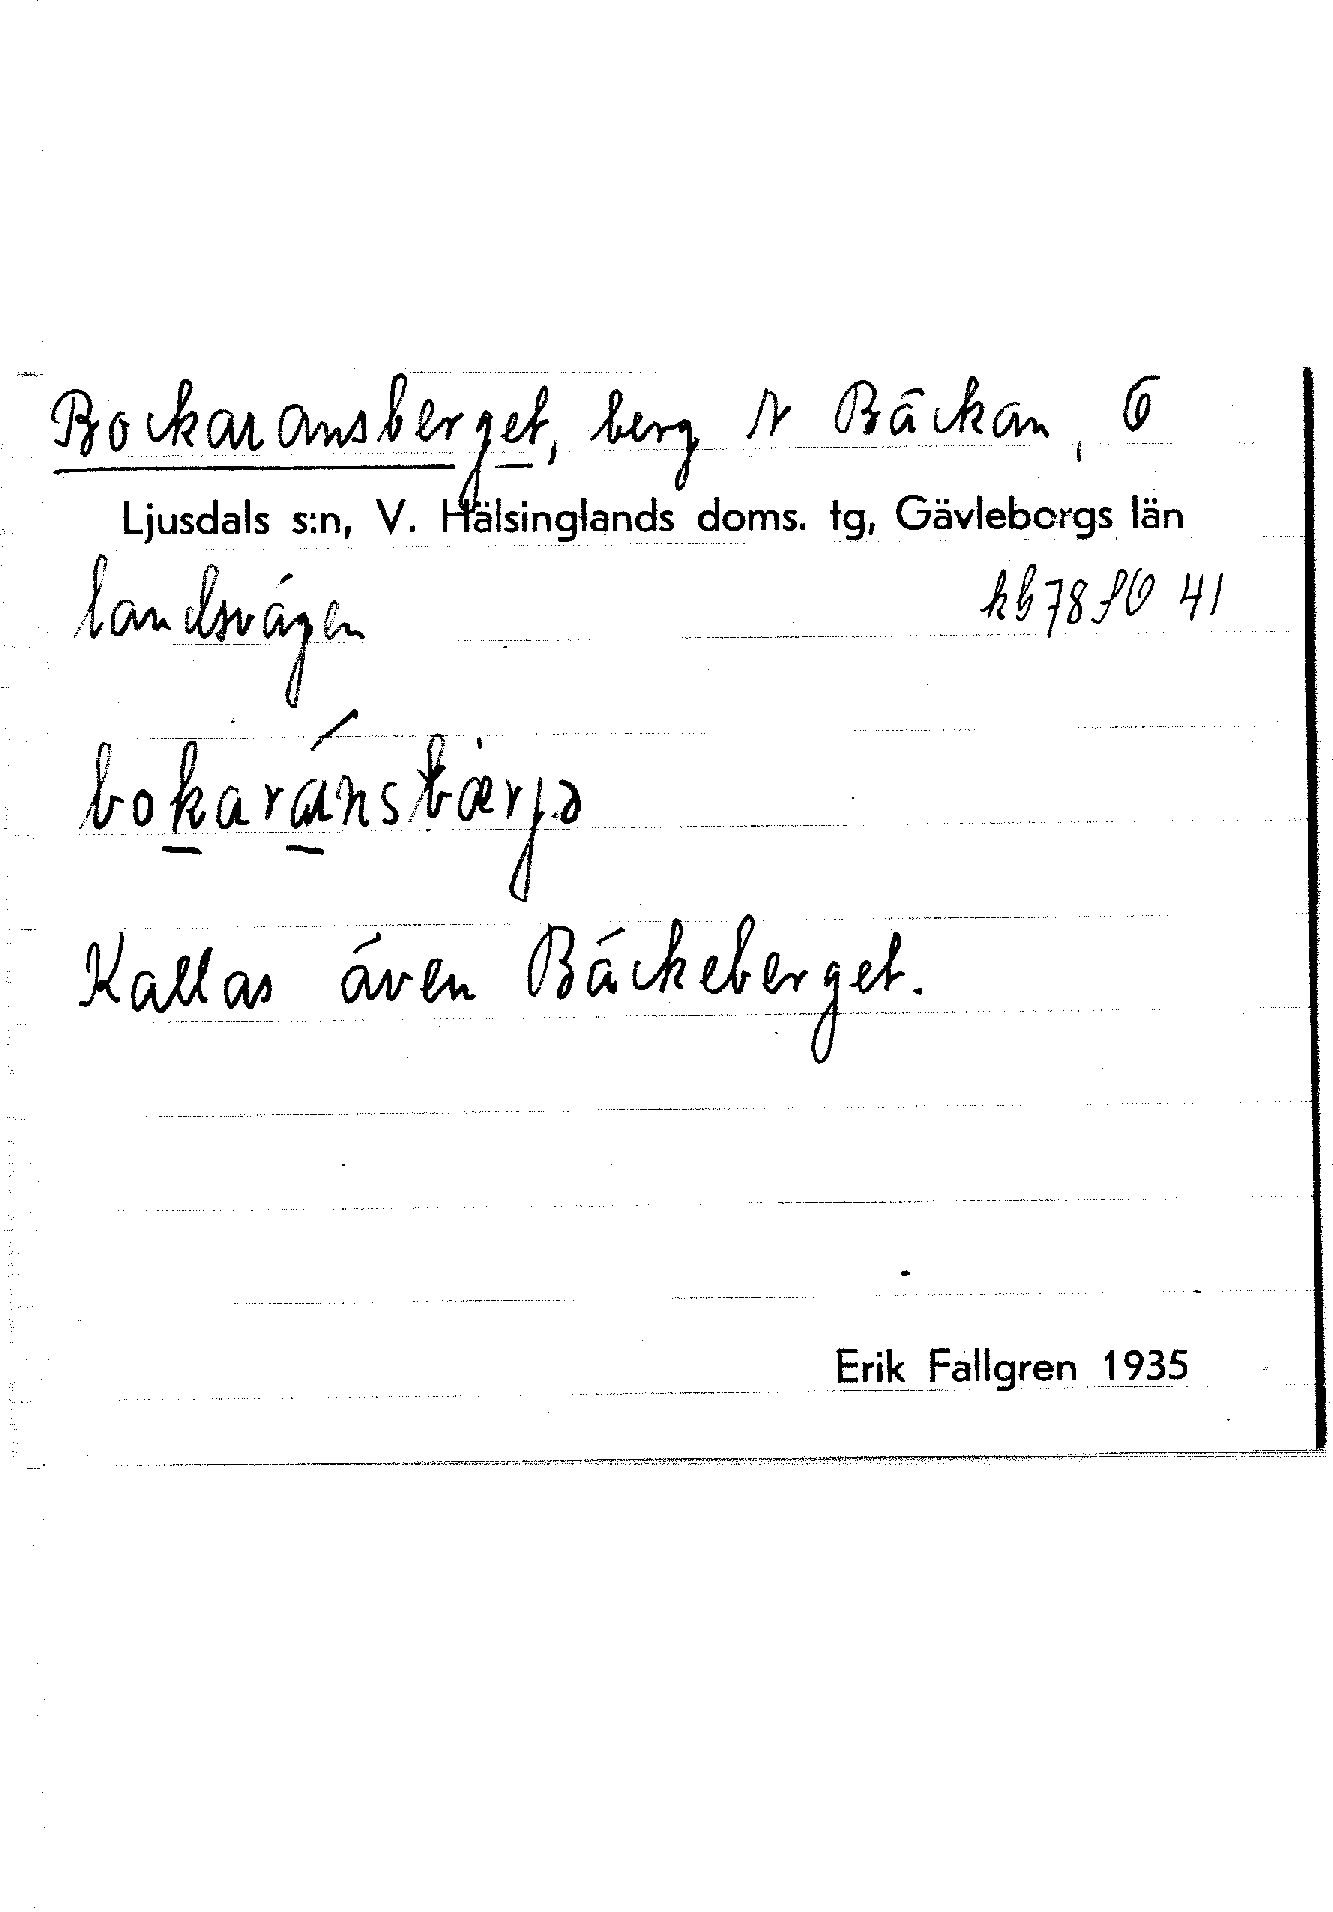 Bockaransberget, berg N Bäckan, Ö
Ljusdals s:n, V. Hälsinglands doms. tg, Gävleborgs län
landsvägen
kb 78 SO 41
bokaránsbærjə
Kallas även Bäckeberget.
Erik Fallgren 1935